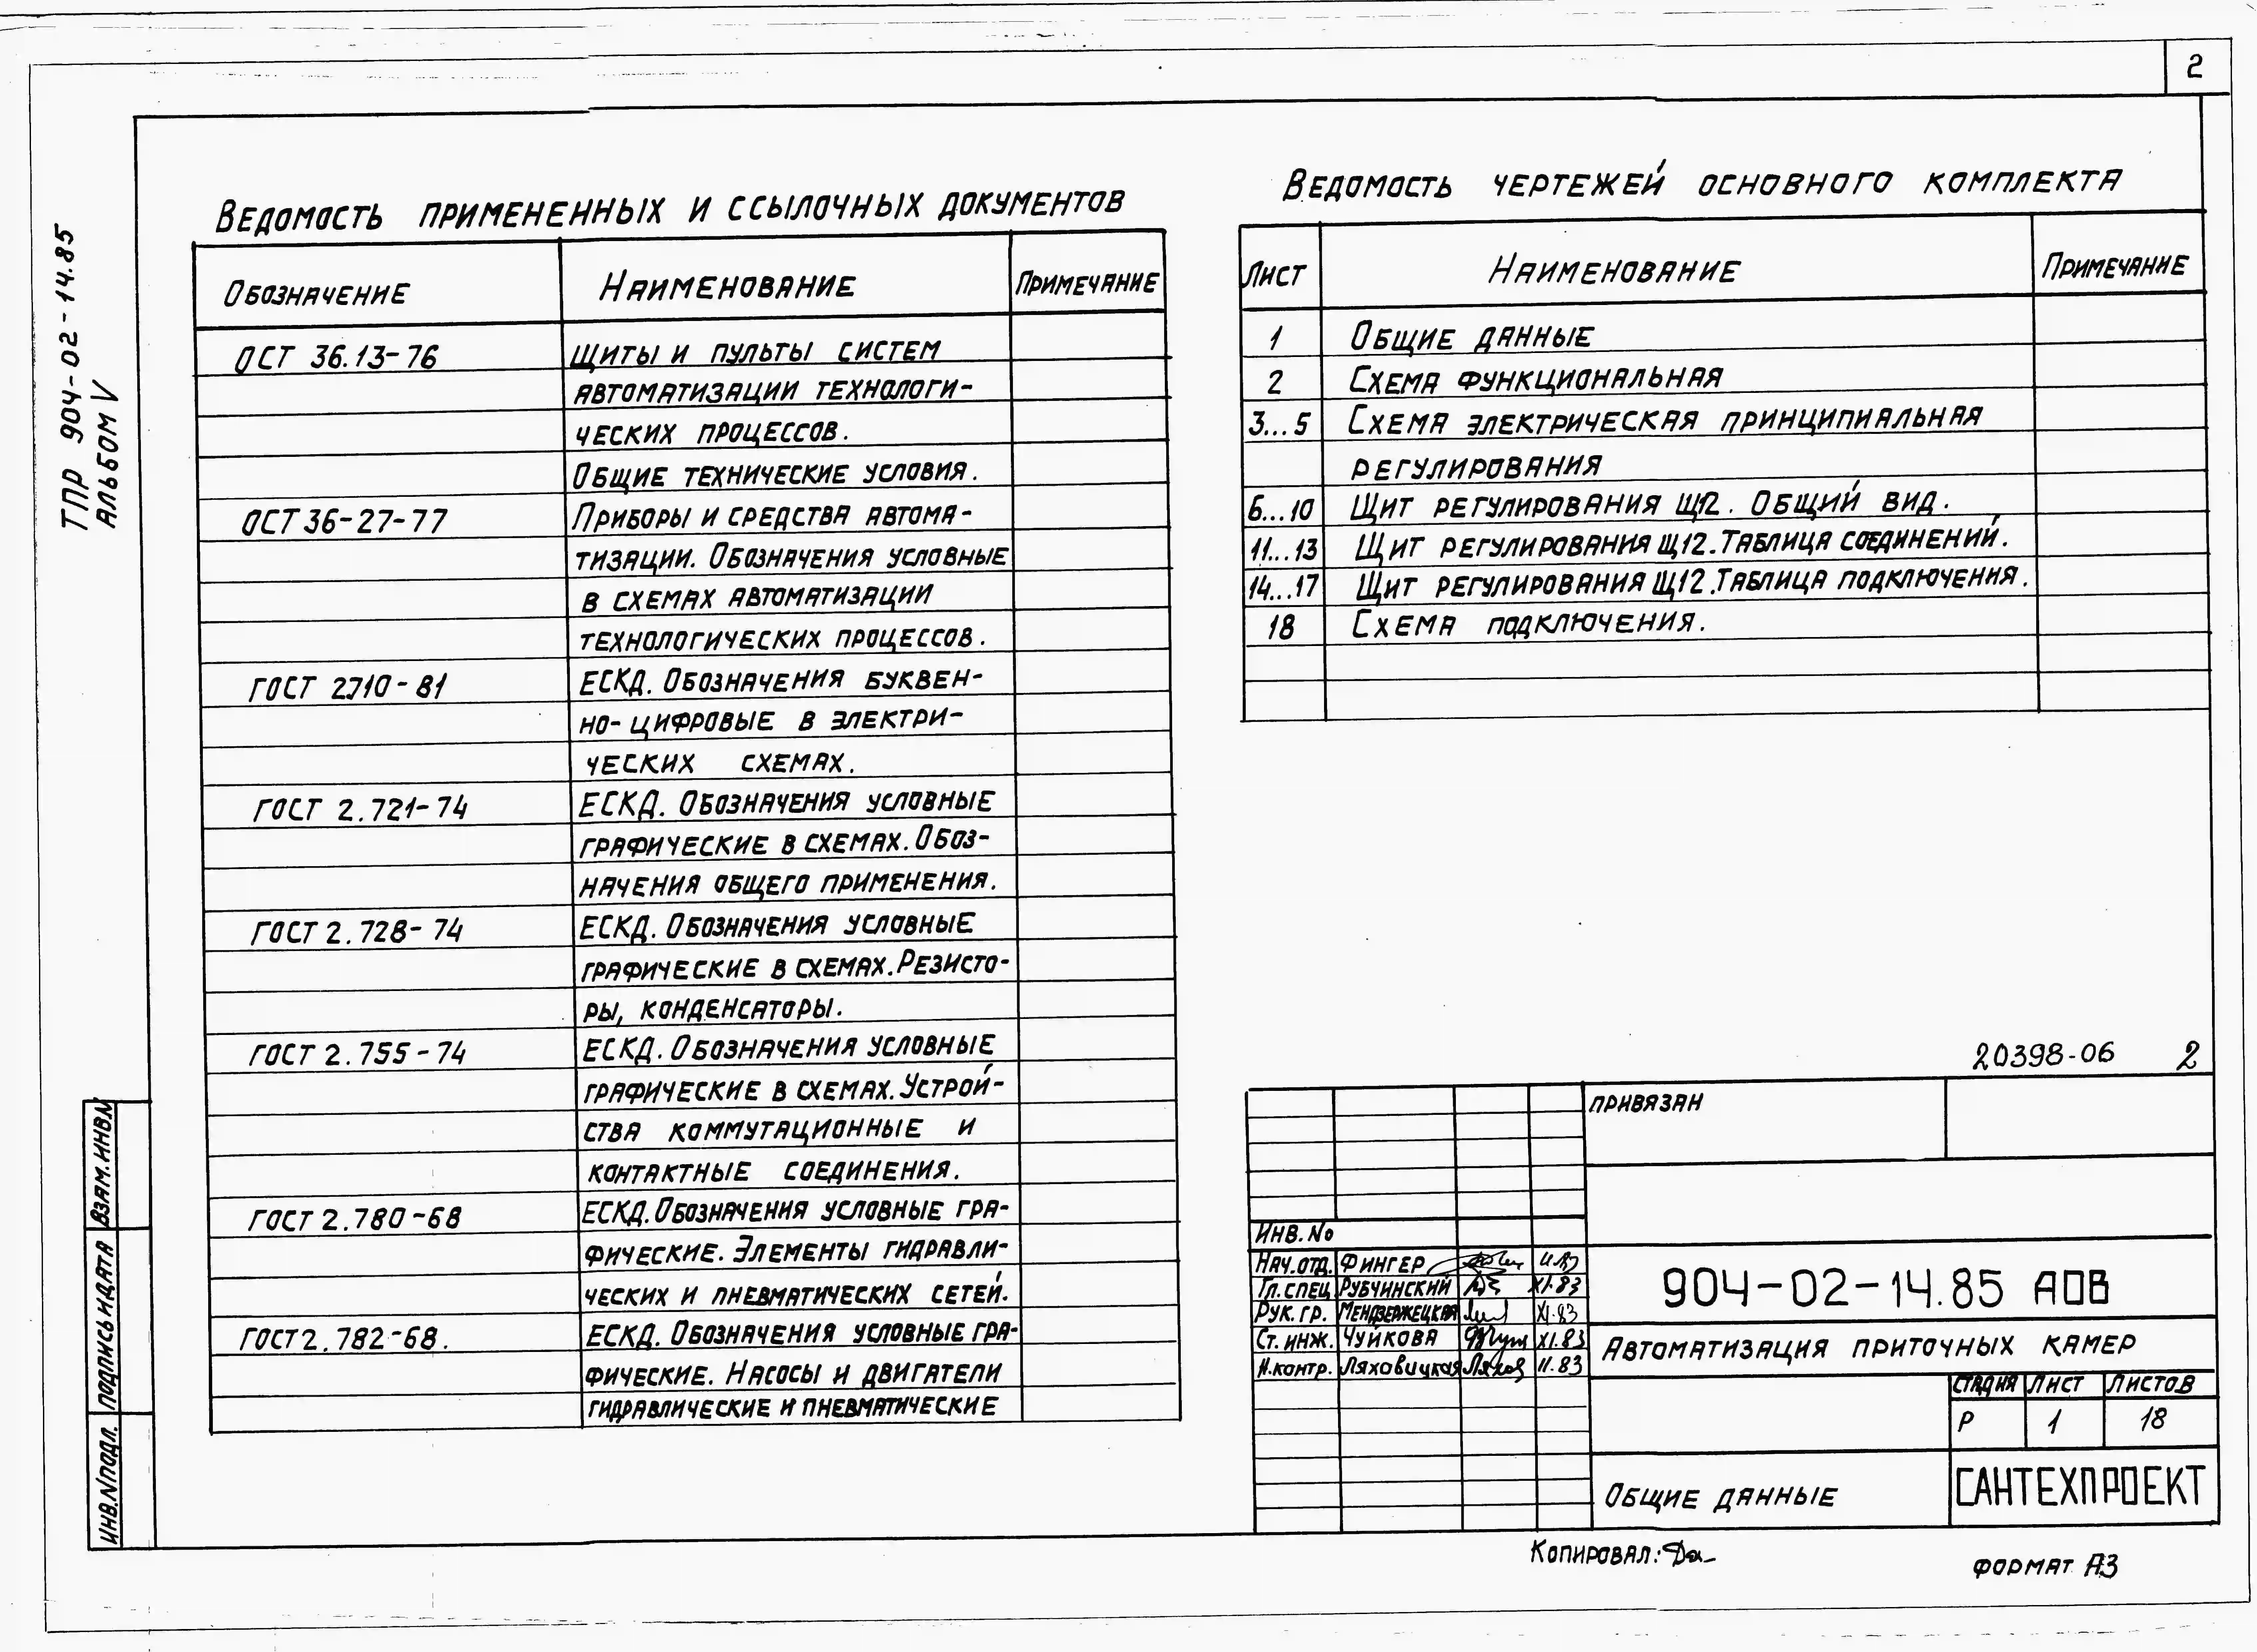 2
ТПР 904-02-14.85
АЛЬБОМ V
Ведомость примененных и ссылочных документов
Обозначение Наименование Примечание
ОСТ 36.13-76 Щиты и пульты систем
автоматизации технологи-
ческих процессов.
Общие технические условия.
ОСТ 36-27-77 Приборы и средства автома-
тизации. Обозначения условные
в схемах автоматизации
технологических процессов.
ГОСТ 2.710-81 ЕСКД. Обозначения буквен-
но-цифровые в электри-
ческих схемах.
ГОСТ 2.721-74 ЕСКД. Обозначения условные
графические в схемах. Обоз-
начения общего применения.
ГОСТ 2.728-74 ЕСКД. Обозначения условные
графические в схемах. Резисто-
ры, конденсаторы.
ГОСТ 2.755-74 ЕСКД. Обозначения условные
графические в схемах. Устрой-
ства коммутационные и
контактные соединения.
ГОСТ 2.780-68 ЕСКД. Обозначения условные гра-
фические. Элементы гидравли-
ческих и пневматических сетей.
ГОСТ 2.782-68. ЕСКД. Обозначения условные гра-
фические. Насосы и двигатели
гидравлические и пневматические
Ведомость чертежей основного комплекта
Лист Наименование Примечание
1 Общие данные
2 Схема функциональная
3...5 Схема электрическая принципиальная
регулирования
6...10 Щит регулирования Щ12. Общий вид.
11...13 Щит регулирования Щ12. Таблица соединений.
14...17 Щит регулирования Щ12. Таблица подключения.
18 Схема подключения.
20398-06 2
Привязан
Инв. №
Нач. отд. Фингер
Гл. спец. Рубчинский XI.83
Рук. гр. Мендзержецкая XI.83
Ст. инж. Чуйкова XI.83
Н. контр. Ляховицкая 11.83
904-02-14.85 АОВ
Автоматизация приточных камер
Стадия Лист Листов
Р 1 18
Общие данные
САНТЕХПРОЕКТ
Взам. инв. №
Подпись и дата
Инв. № подл.
Копировал:
Формат А3